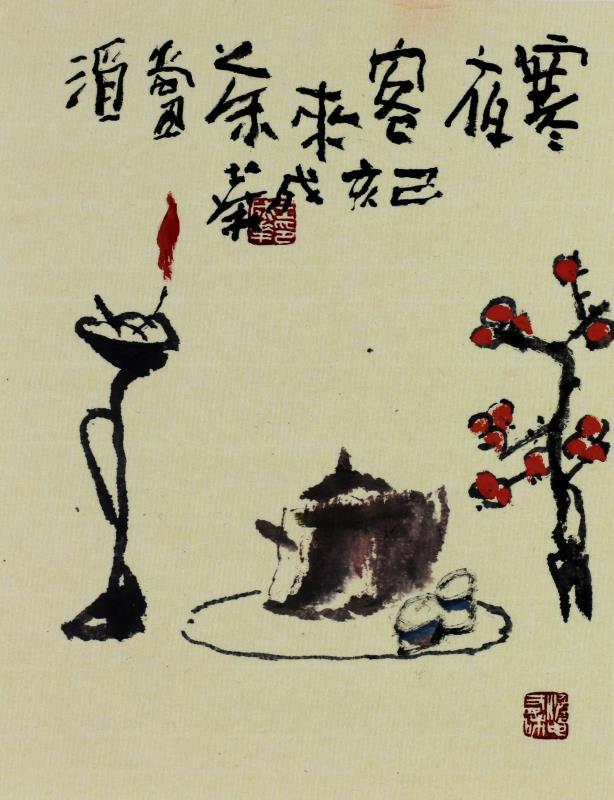 寒夜客來茶當酒
己亥成華